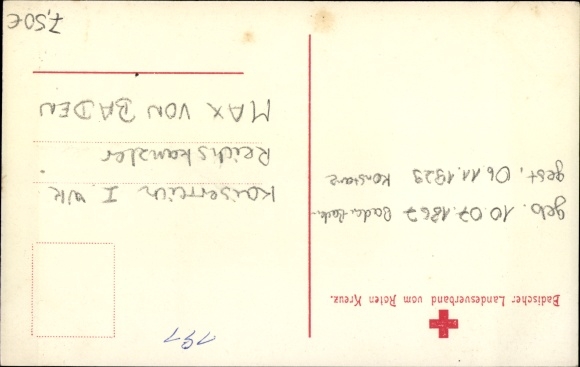 Badischer Landesverband vom Roten Kreuz.
geb. 10.07.1867 Baden-Bad.
gest. 06.11.1929 Konstanz
197
Kaiserreich I. WK
Reichskanzler
MAX VON BADEN
7,50€